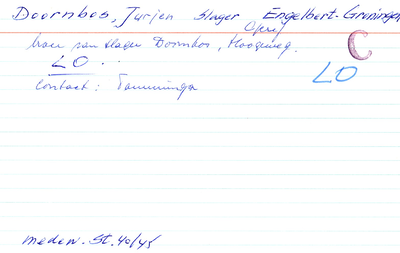 Doornbos, Jurjen Slager Engelbert-Groningen
broer van slager Doornbos, Hoogeweg.
C
LO
LO
Contact: Tamminga
medew. St. 40/45